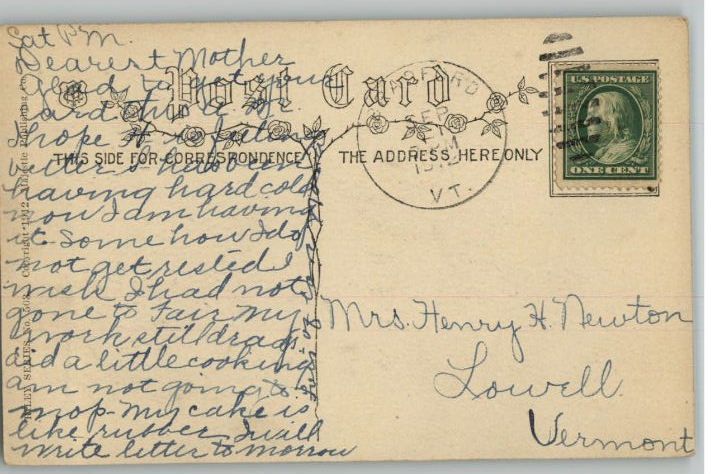 Sat P.M.
Dearest Mother
Glad to get your
card this a.m.
hope H is feeling
better. has been
having hard cold
now I am having
it. Some how I do
not get rested I
wish I had not
gone to Fair my
work still drags
did a little cooking
am not going to
mop. My cake is
like rubber. I will
write letter tomorrow
Post Card
THIS SIDE FOR CORRESPONDENCE
THE ADDRESS HERE ONLY
SEP
VT.
U.S. POSTAGE
ONE CENT
Mrs. Henry H. Newton
Lowell
Vermont
SERIES
Copyright 1912
Publishing Co.